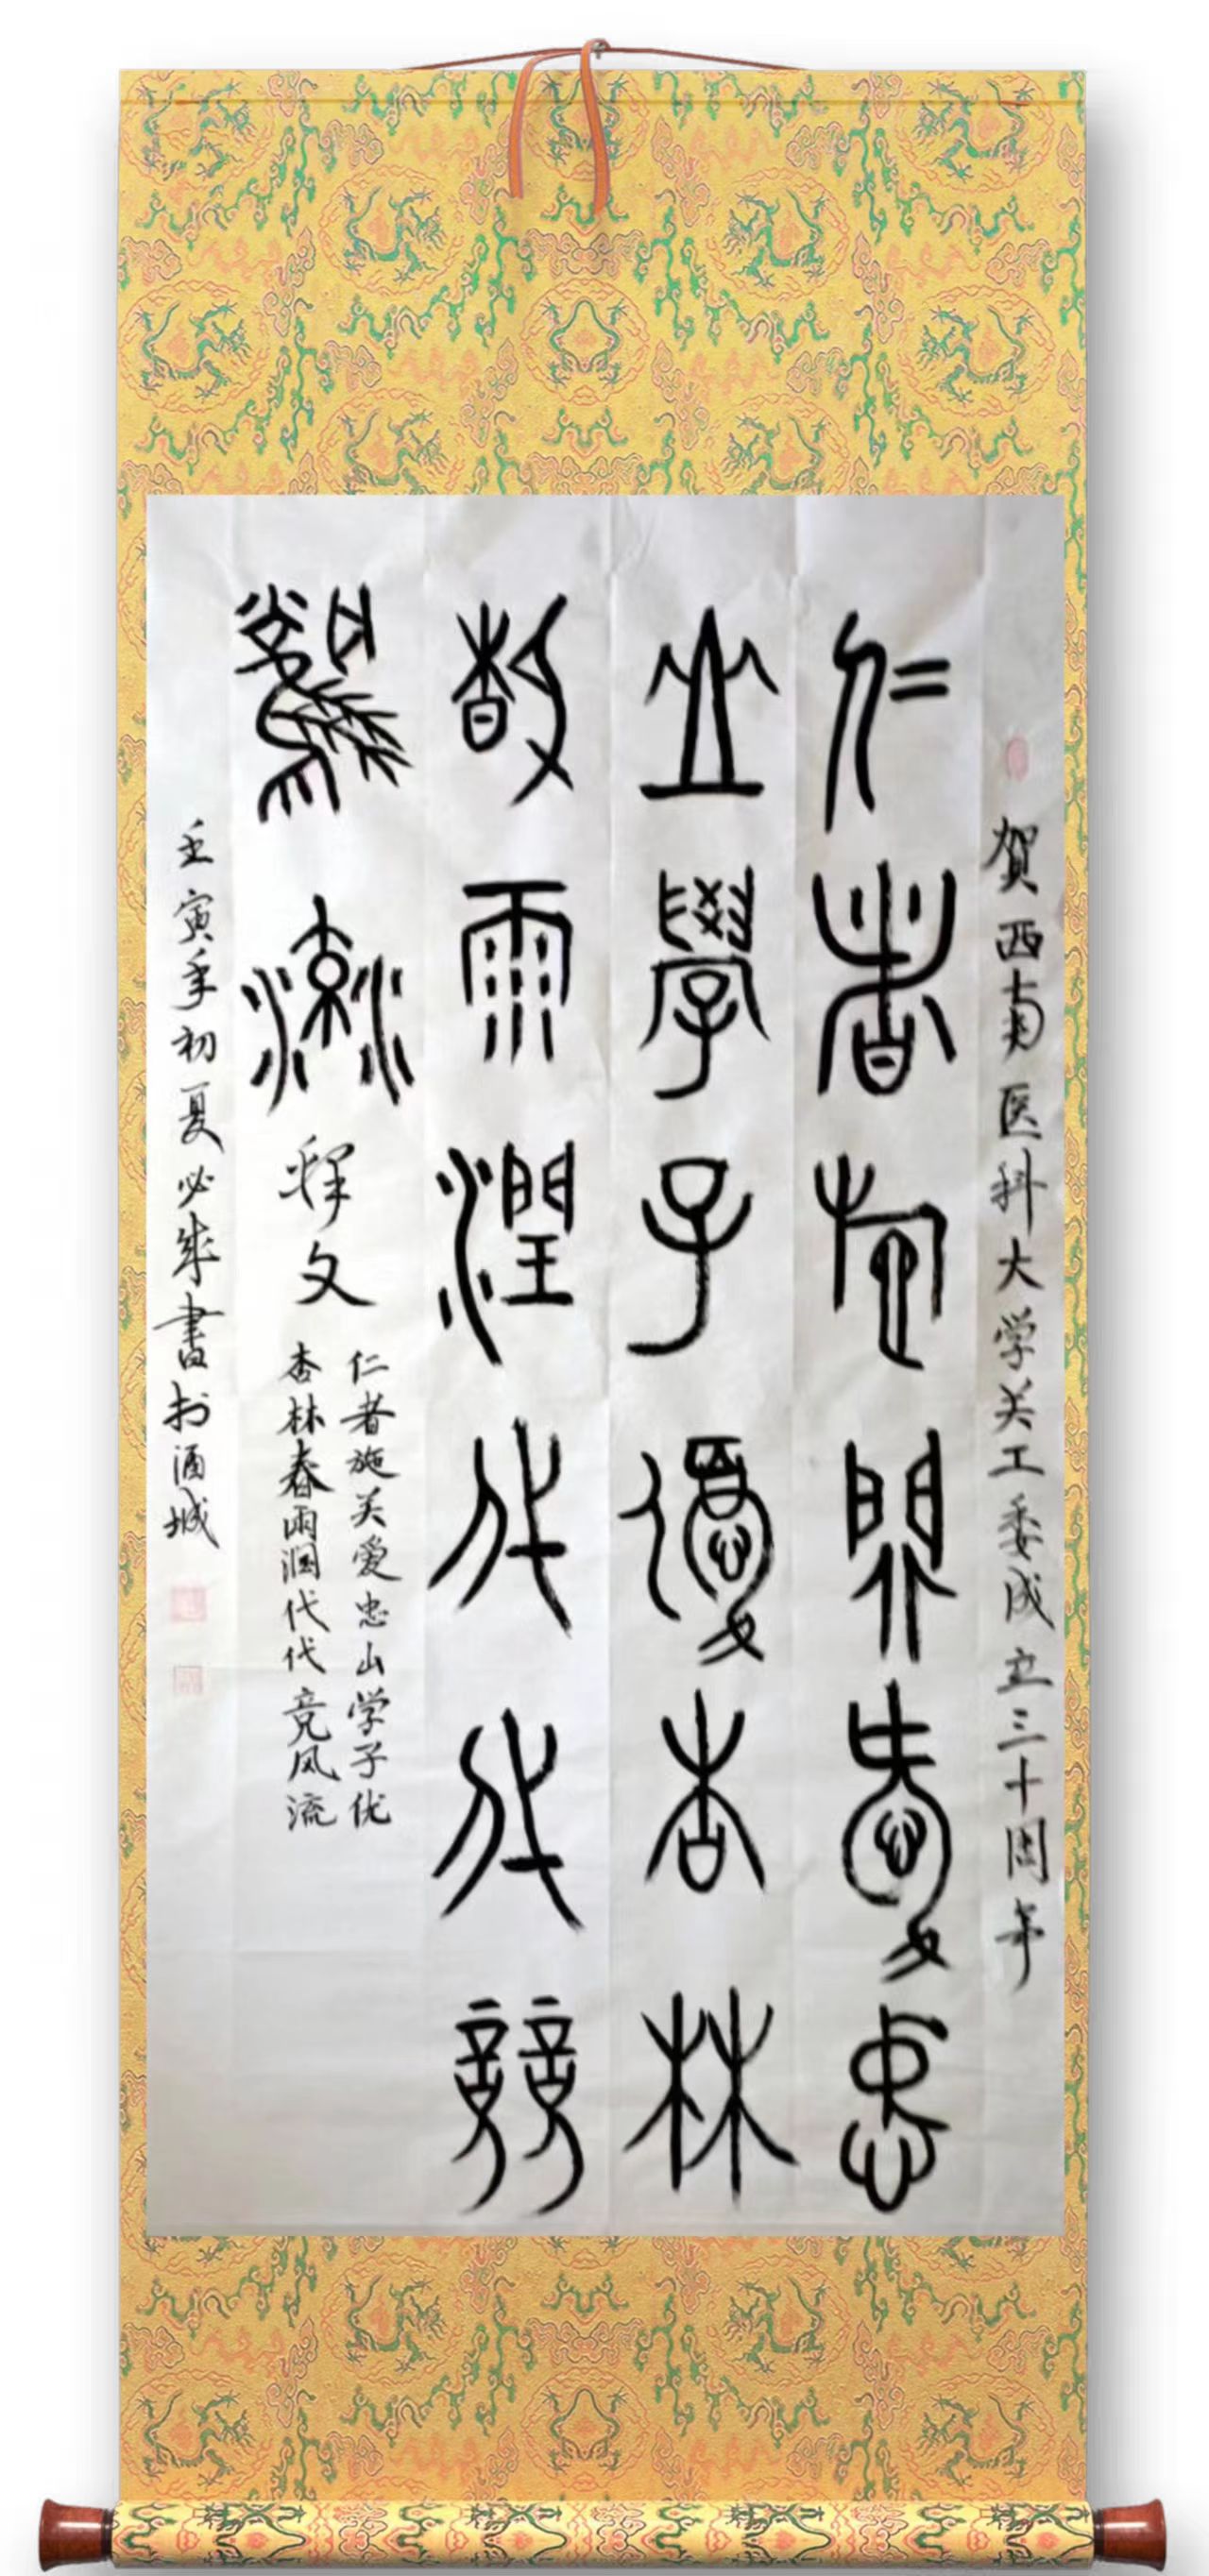 贺西南医科大学关工委成立三十周年
仁者施關愛忠
山學子優杏林
春雨潤代代競
風流
释文
仁者施关爱忠山学子优
杏林春雨润代代竞风流
壬寅年初夏必成書扵酒城